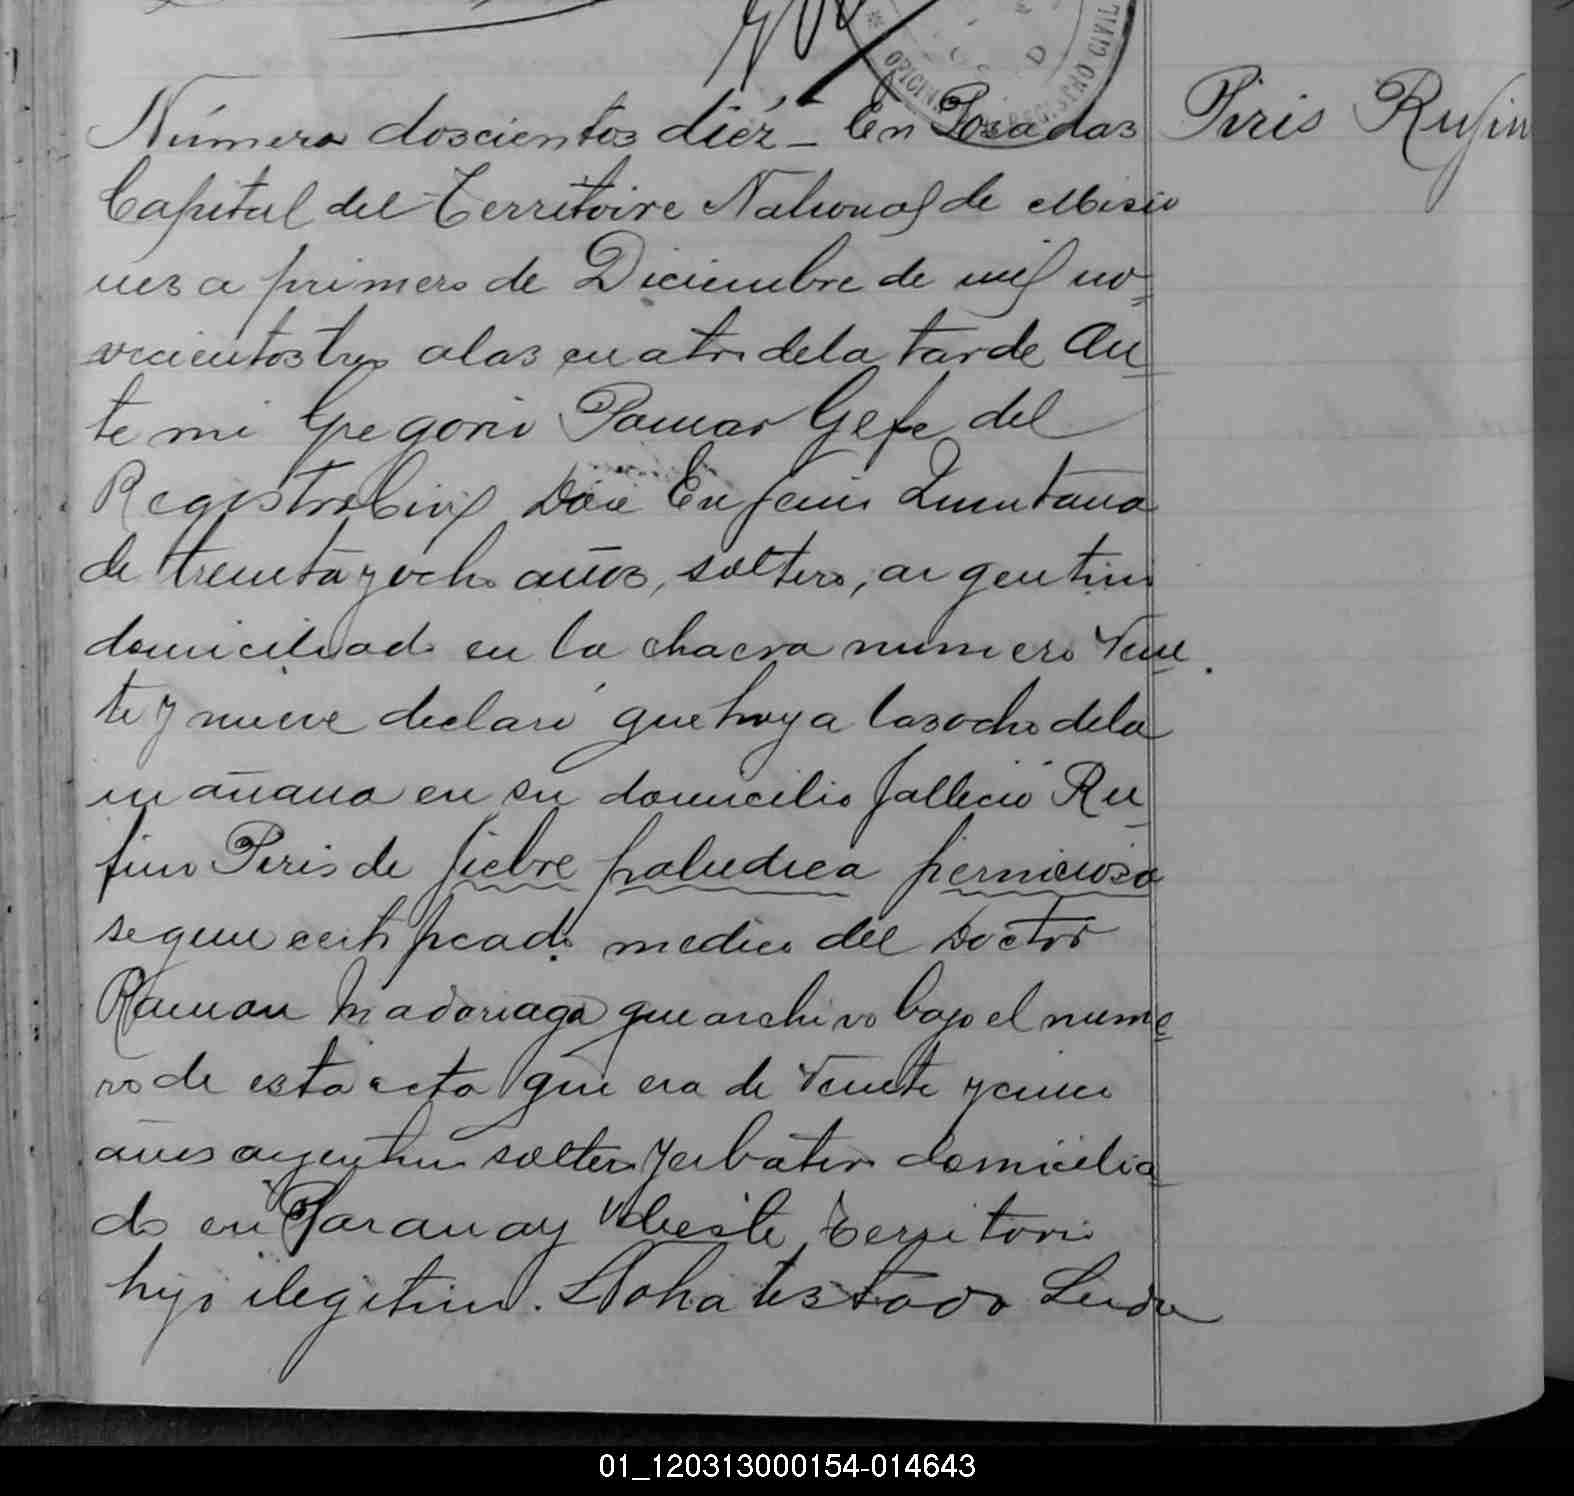 Número doscientos diéz— En Posadas
Piris Rufin
Capital del Territoire National de Misio
nes a primero de Diciembre de mil no=
vecientos tres a las cuatro de la tarde An
te mi Gregorio Pomar Gefe del
Registro Civil Don Eujenio Quintana
de treinta y ocho años, soltero, argentino
domiciliado en la chacra numero Vein
te y nueve declaró que hoy a las ocho de la
mañana en su domicilio falleció Ru
fino Piris de fiebre paludica perniciosa
segun certificado medico del Doctor
Ramon Madariaga que archivo bajo el nume
ro de esta acta que era de Veinte y cinco
años argentino soltero yerbatero domicilia
do en "Paranay" de este Territorio
hijo ilegitimo. No ha testado Leida
OFICINA REGISTRO CIVIL
01_120313000154-014643